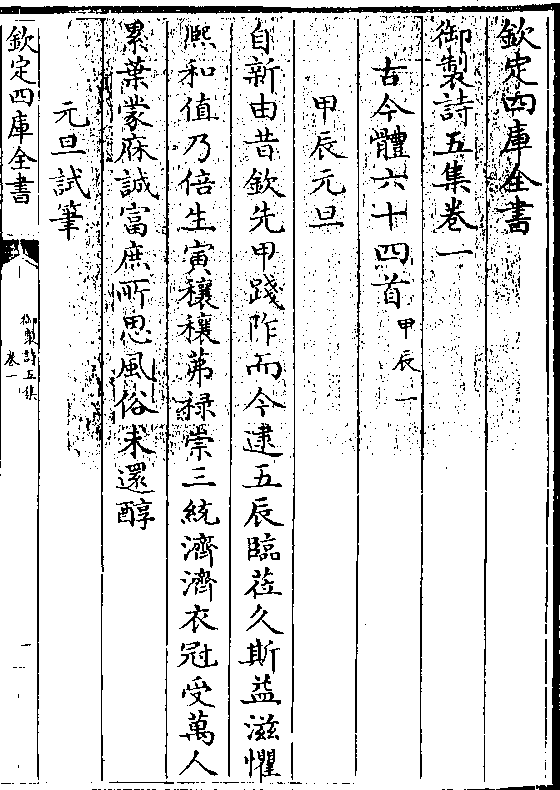 欽定四庫全書
御製詩五集卷一
古今體六十四首甲辰一
甲辰元旦
自新由昔欽先甲踐阼而今逮五辰臨莅久斯益滋懼
熈和值乃倍生寅穰穰茀禄崇三統濟濟衣冠受萬人
累葉蒙庥誠富庶所思風俗未還醇
元旦試筆
欽定四庫全書
御製詩五集
卷一
一